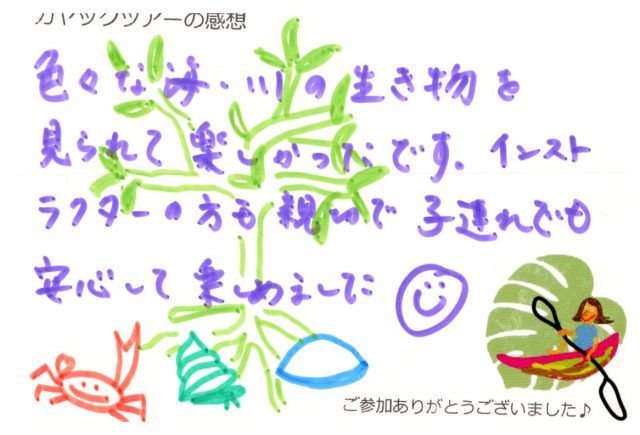 カヤックツアーの感想
色々な海・川の生き物を
見られて楽しかったです。インスト
ラクターの方も親切で子連れでも
安心して楽しめました
ご参加ありがとうございました♪